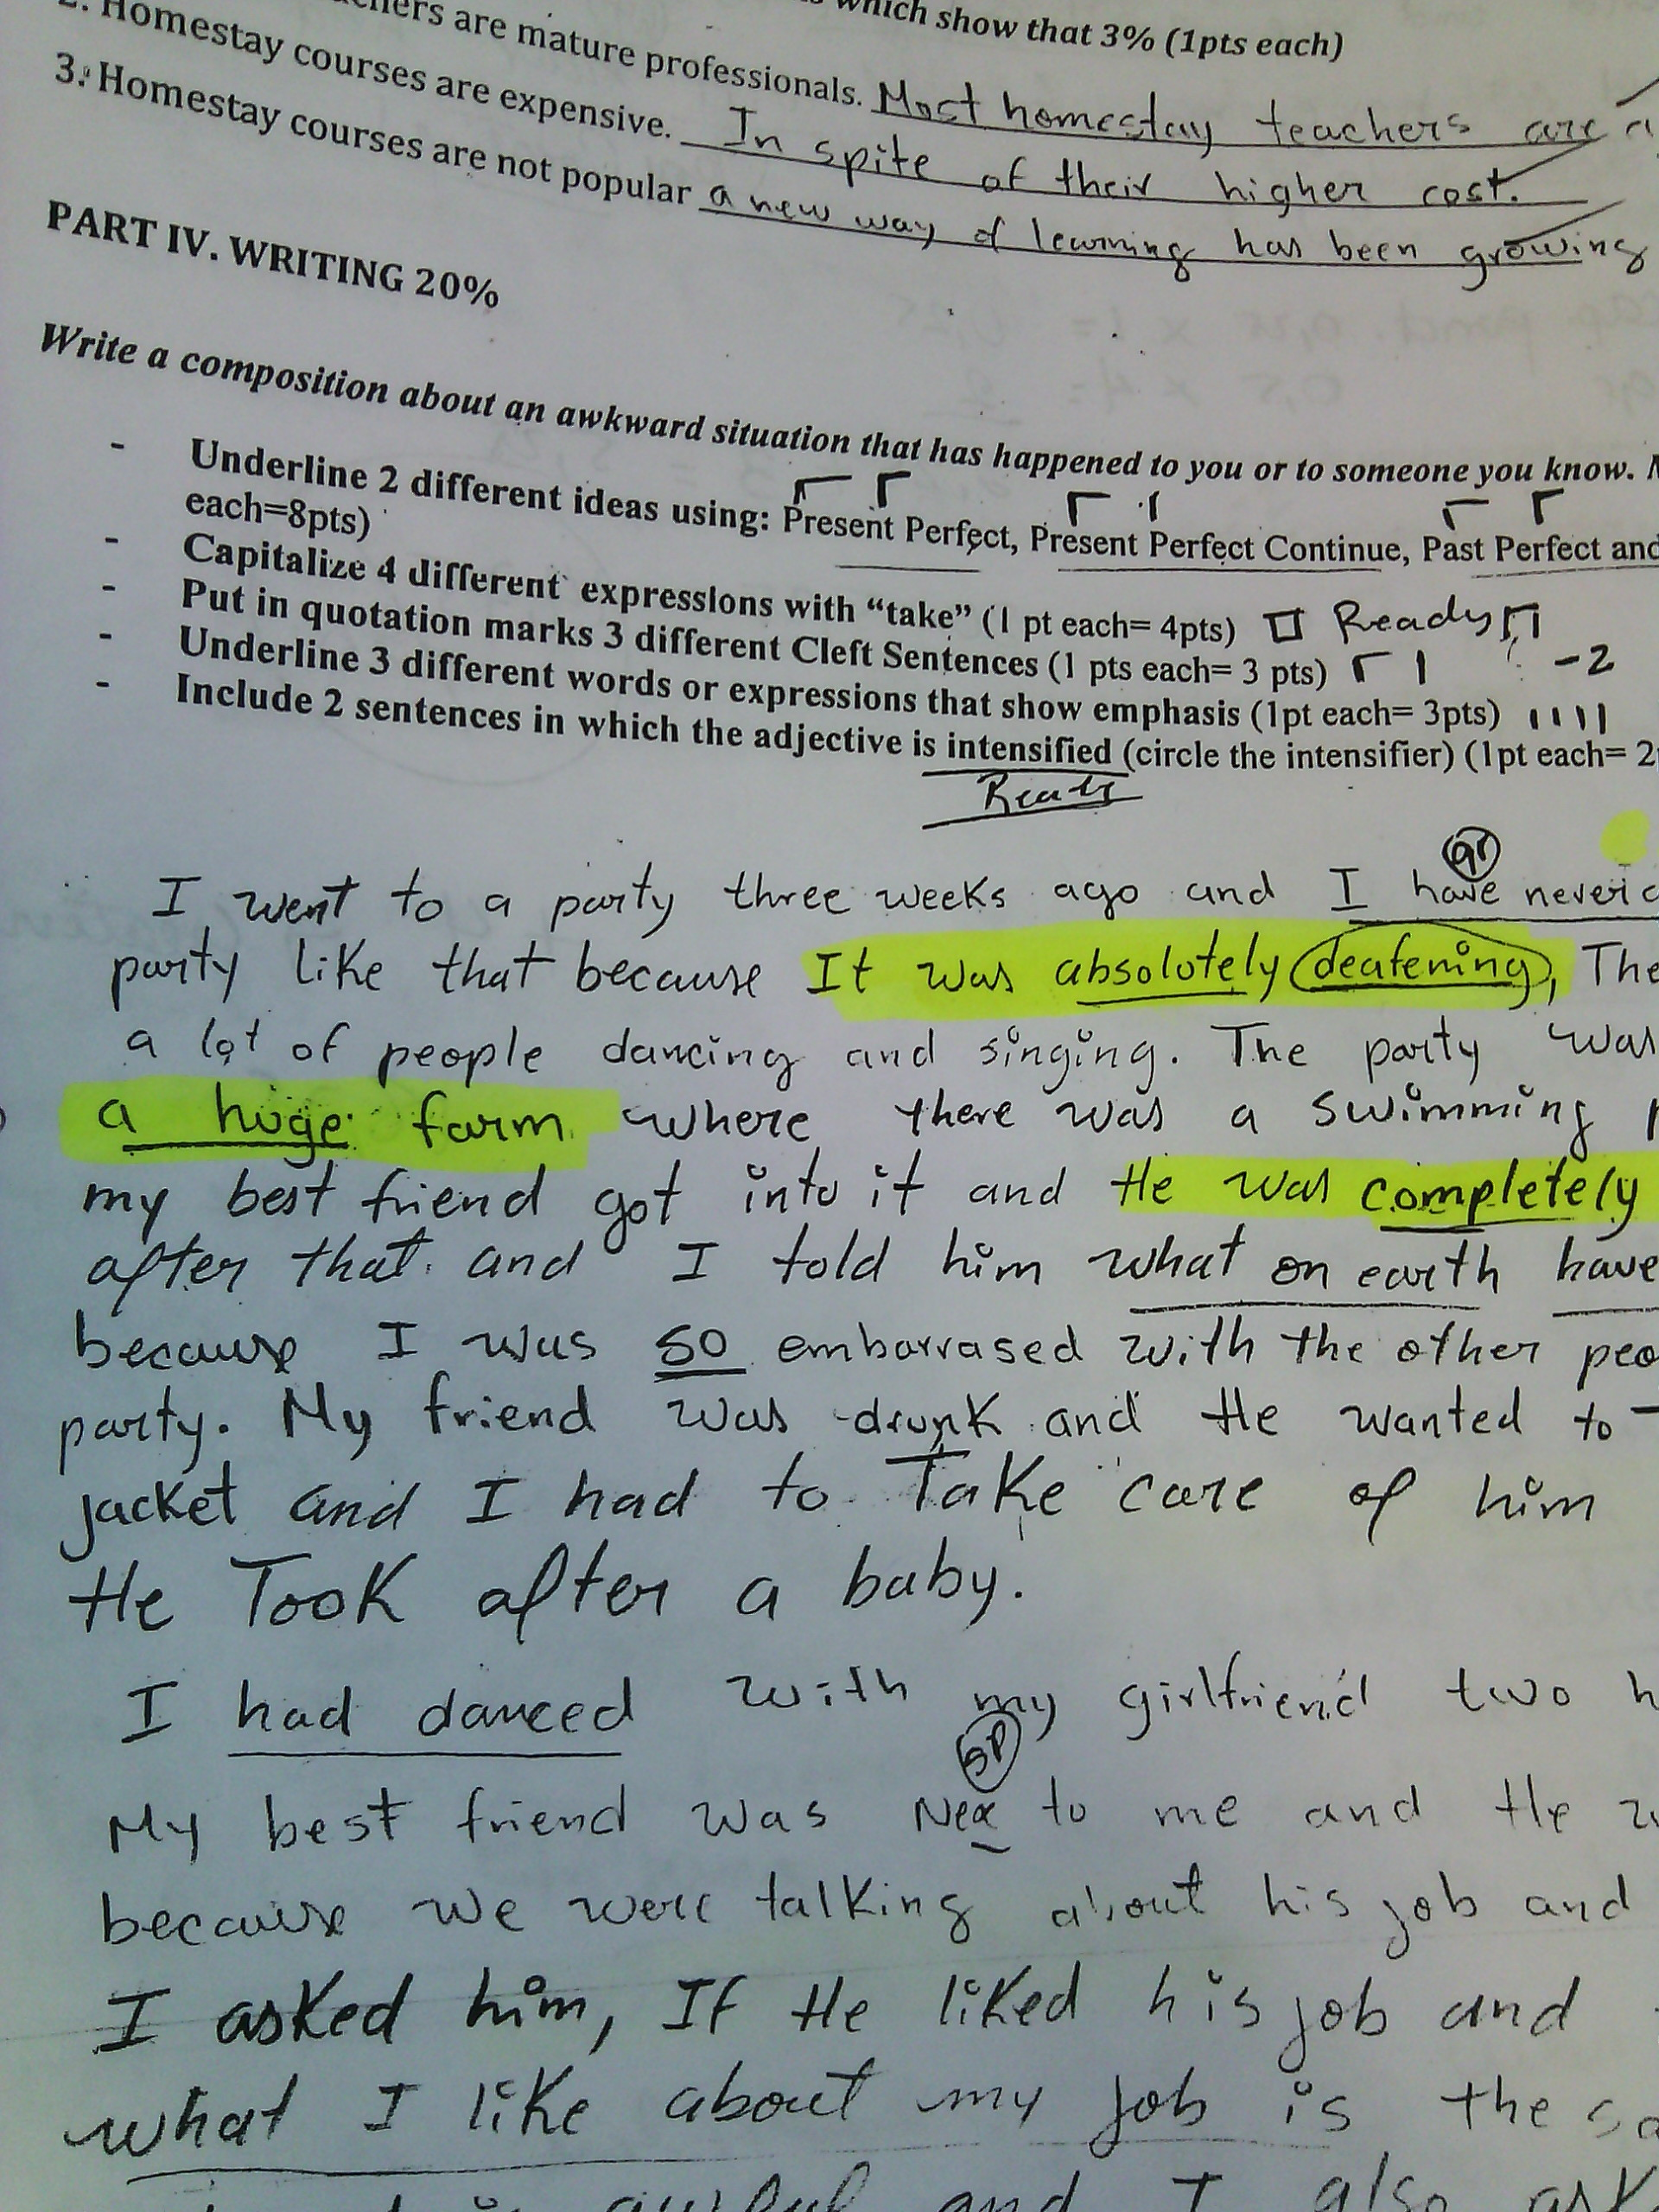 which show that 3% (1pts each)
are mature professionals. Most homestay teachers are
2. Homestay courses are expensive. In spite of their higher cost.
3. Homestay courses are not popular a new way of learning has been growing
PART IV. WRITING 20%
Write a composition about an awkward situation that has happened to you or to someone you know.
- Underline 2 different ideas using: Present Perfect, Present Perfect Continue, Past Perfect and
each=8pts)
- Capitalize 4 different expressions with “take” (1 pt each= 4pts) Ready
- Put in quotation marks 3 different Cleft Sentences (1 pts each= 3 pts) -2
- Underline 3 different words or expressions that show emphasis (1pt each= 3pts)
- Include 2 sentences in which the adjective is intensified (circle the intensifier) (1pt each= 2
gr
I went to a party three weeks ago and I have never
party like that because It was absolutely deafening, The
a lot of people dancing and singing. The party was
a huge farm where there was a swimming
my best friend got into it and He was completely
after that and I told him what on earth have
because I was so embarrased with the other peo
party. My friend was drunk and He wanted to
jacket and I had to Take care of him
He Took after a baby.
I had danced with my girlfriend two h
sp
My best friend was Nex to me and He
because we were talking about his job and
I asked him, If He liked his job and
what I like about my job is the sa
awful and I also ask